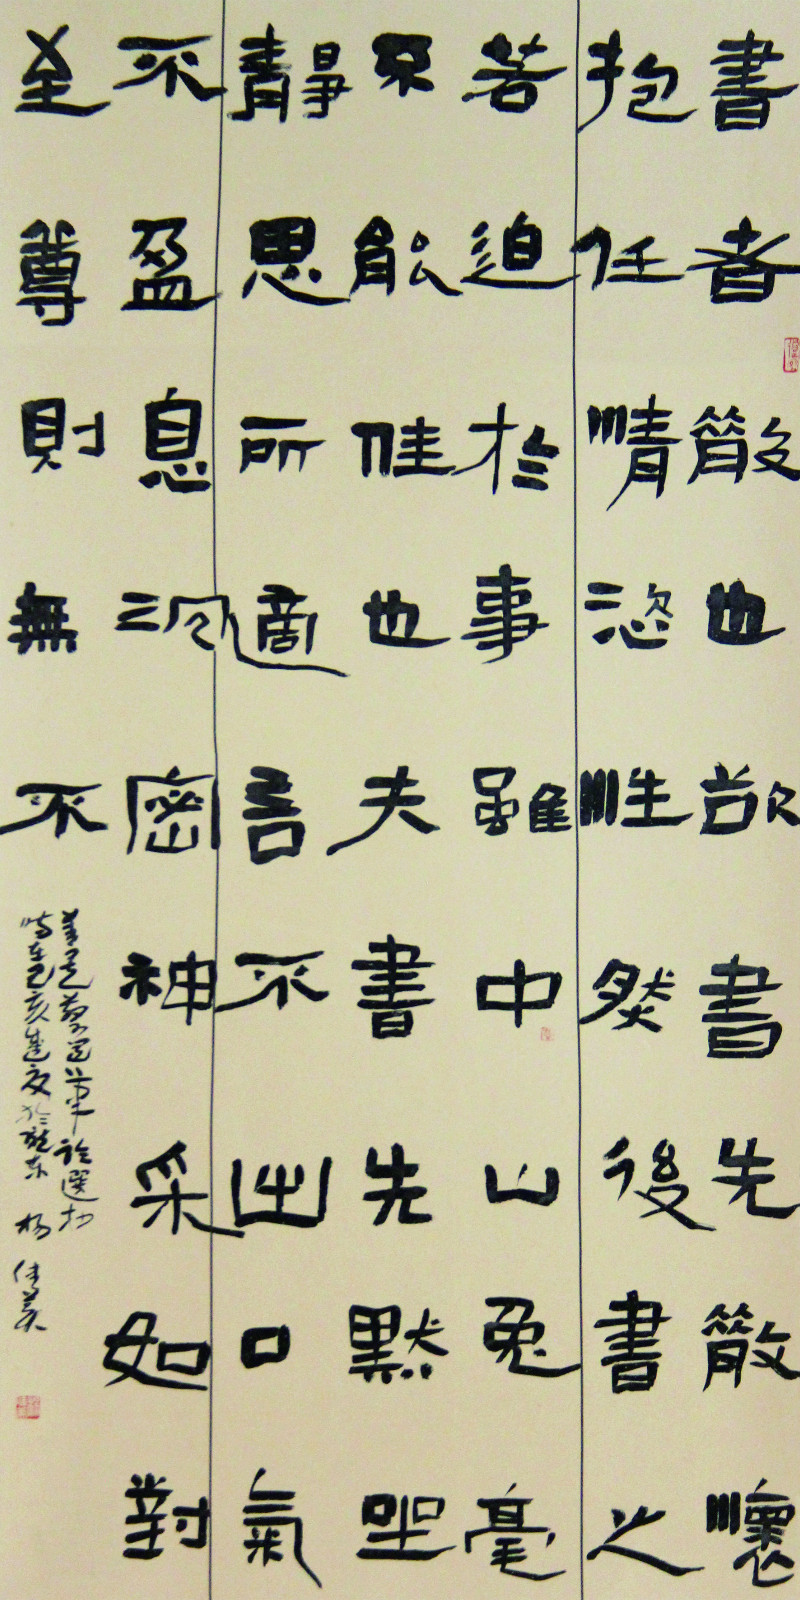 書者散也欲書先散懷
抱任情恣性然後書之
若迫於事雖中山兔毫
不能佳也夫書先默坐
靜思所適言不出口氣
不盈息沉密神采如對
至尊則無不
善矣蔡邕筆論選抄
時在己亥盛夏於